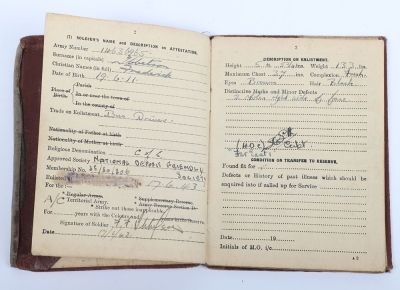 2
(I) SOLDIER'S NAME and DESCRIPTION on ATTESTATION.
Army Number 14631065
Surname (in capitals)
Christian Names (in full) Frederick
Date of Birth 19.6.11
Parish
Place of Birth
In or near the town of
In the county of
Trade on Enlistment
Nationality of Father at birth
Nationality of Mother at birth
Religious Denomination C of E
Approved Society NATIONAL DEPOSIT FRIENDLY
SOCIETY
Membership No.
Enlisted 7.6.43
For the :—
* Regular Army.
* Supplementary Reserve.
A/C
* Territorial Army.
* Army Reserve Section D.
* Strike out those inapplicable.
For years with the Colours and years in the Reserve.
Signature of Soldier
Date
3
DESCRIPTION ON ENLISTMENT.
Height ft. ins. Weight lbs.
Maximum Chest 37 ins. Complexion Fresh
Eyes Brown Hair Black
Distinctive Marks and Minor Defects
2 Moles right side of face
CONDITION ON TRANSFER TO RESERVE.
Found fit for
Defects or History of past illness which should be
enquired into if called up for Service
Date 19
Initials of M.O. i/c